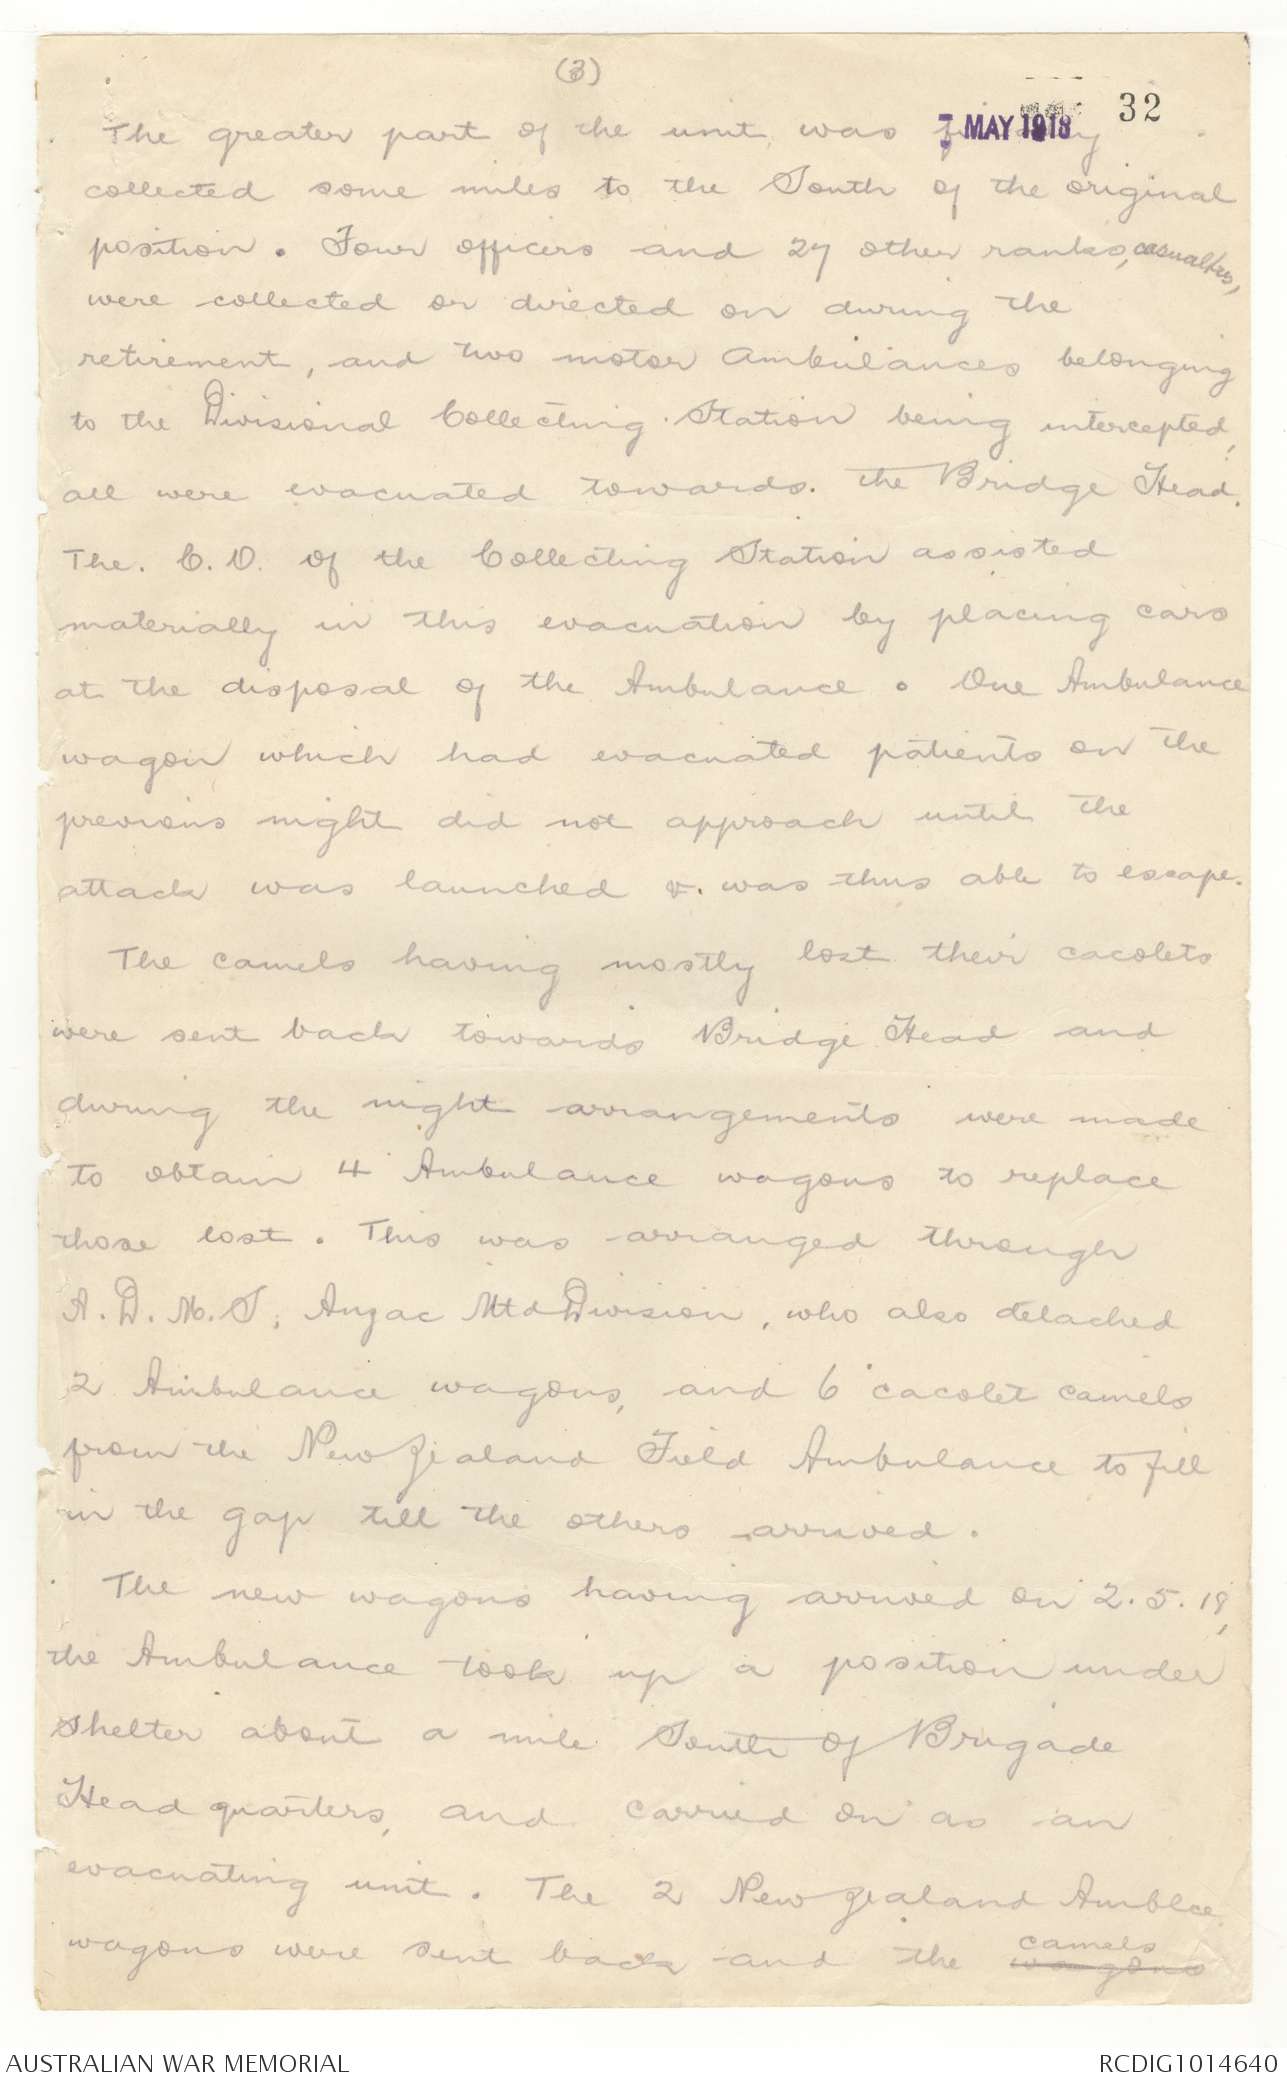 (3)
32
7 MAY 1918
The greater part of the unit was finally
collected some miles to the South of the original
position. Four officers and 27 other ranks, casualties,
were collected or directed on during the
retirement, and two motor ambulances belonging
to the Divisional Collecting Station being intercepted,
all were evacuated towards. the Bridge Head.
The. C.O. of the Collecting Station assisted
materially in this evacuation by placing cars
at the disposal of the Ambulance. One Ambulance
wagon which had evacuated patients on the
previous night did not approach until the
attack was launched &. was thus able to escape.
The camels having mostly lost their cacolets
were sent back towards Bridge Head and
during the night arrangements were made
to obtain 4 Ambulance wagons to replace
those lost. This was arranged through
A.D.M.S, Anzac Mtd Division, who also detached
2 Ambulance wagons, and 6 cacolet camels
from the New Zealand Field Ambulance to fill
in the gap till the others arrived.
The new wagons having arrived on 2.5.18,
the Ambulance took up a position under
shelter about a mile South of Brigade
Headquarters, and carried on as an
evacuating unit. The 2 New Zealand Amblce
wagons were sent back and the wagons camels
AUSTRALIAN WAR MEMORIAL
RCDIG1014640